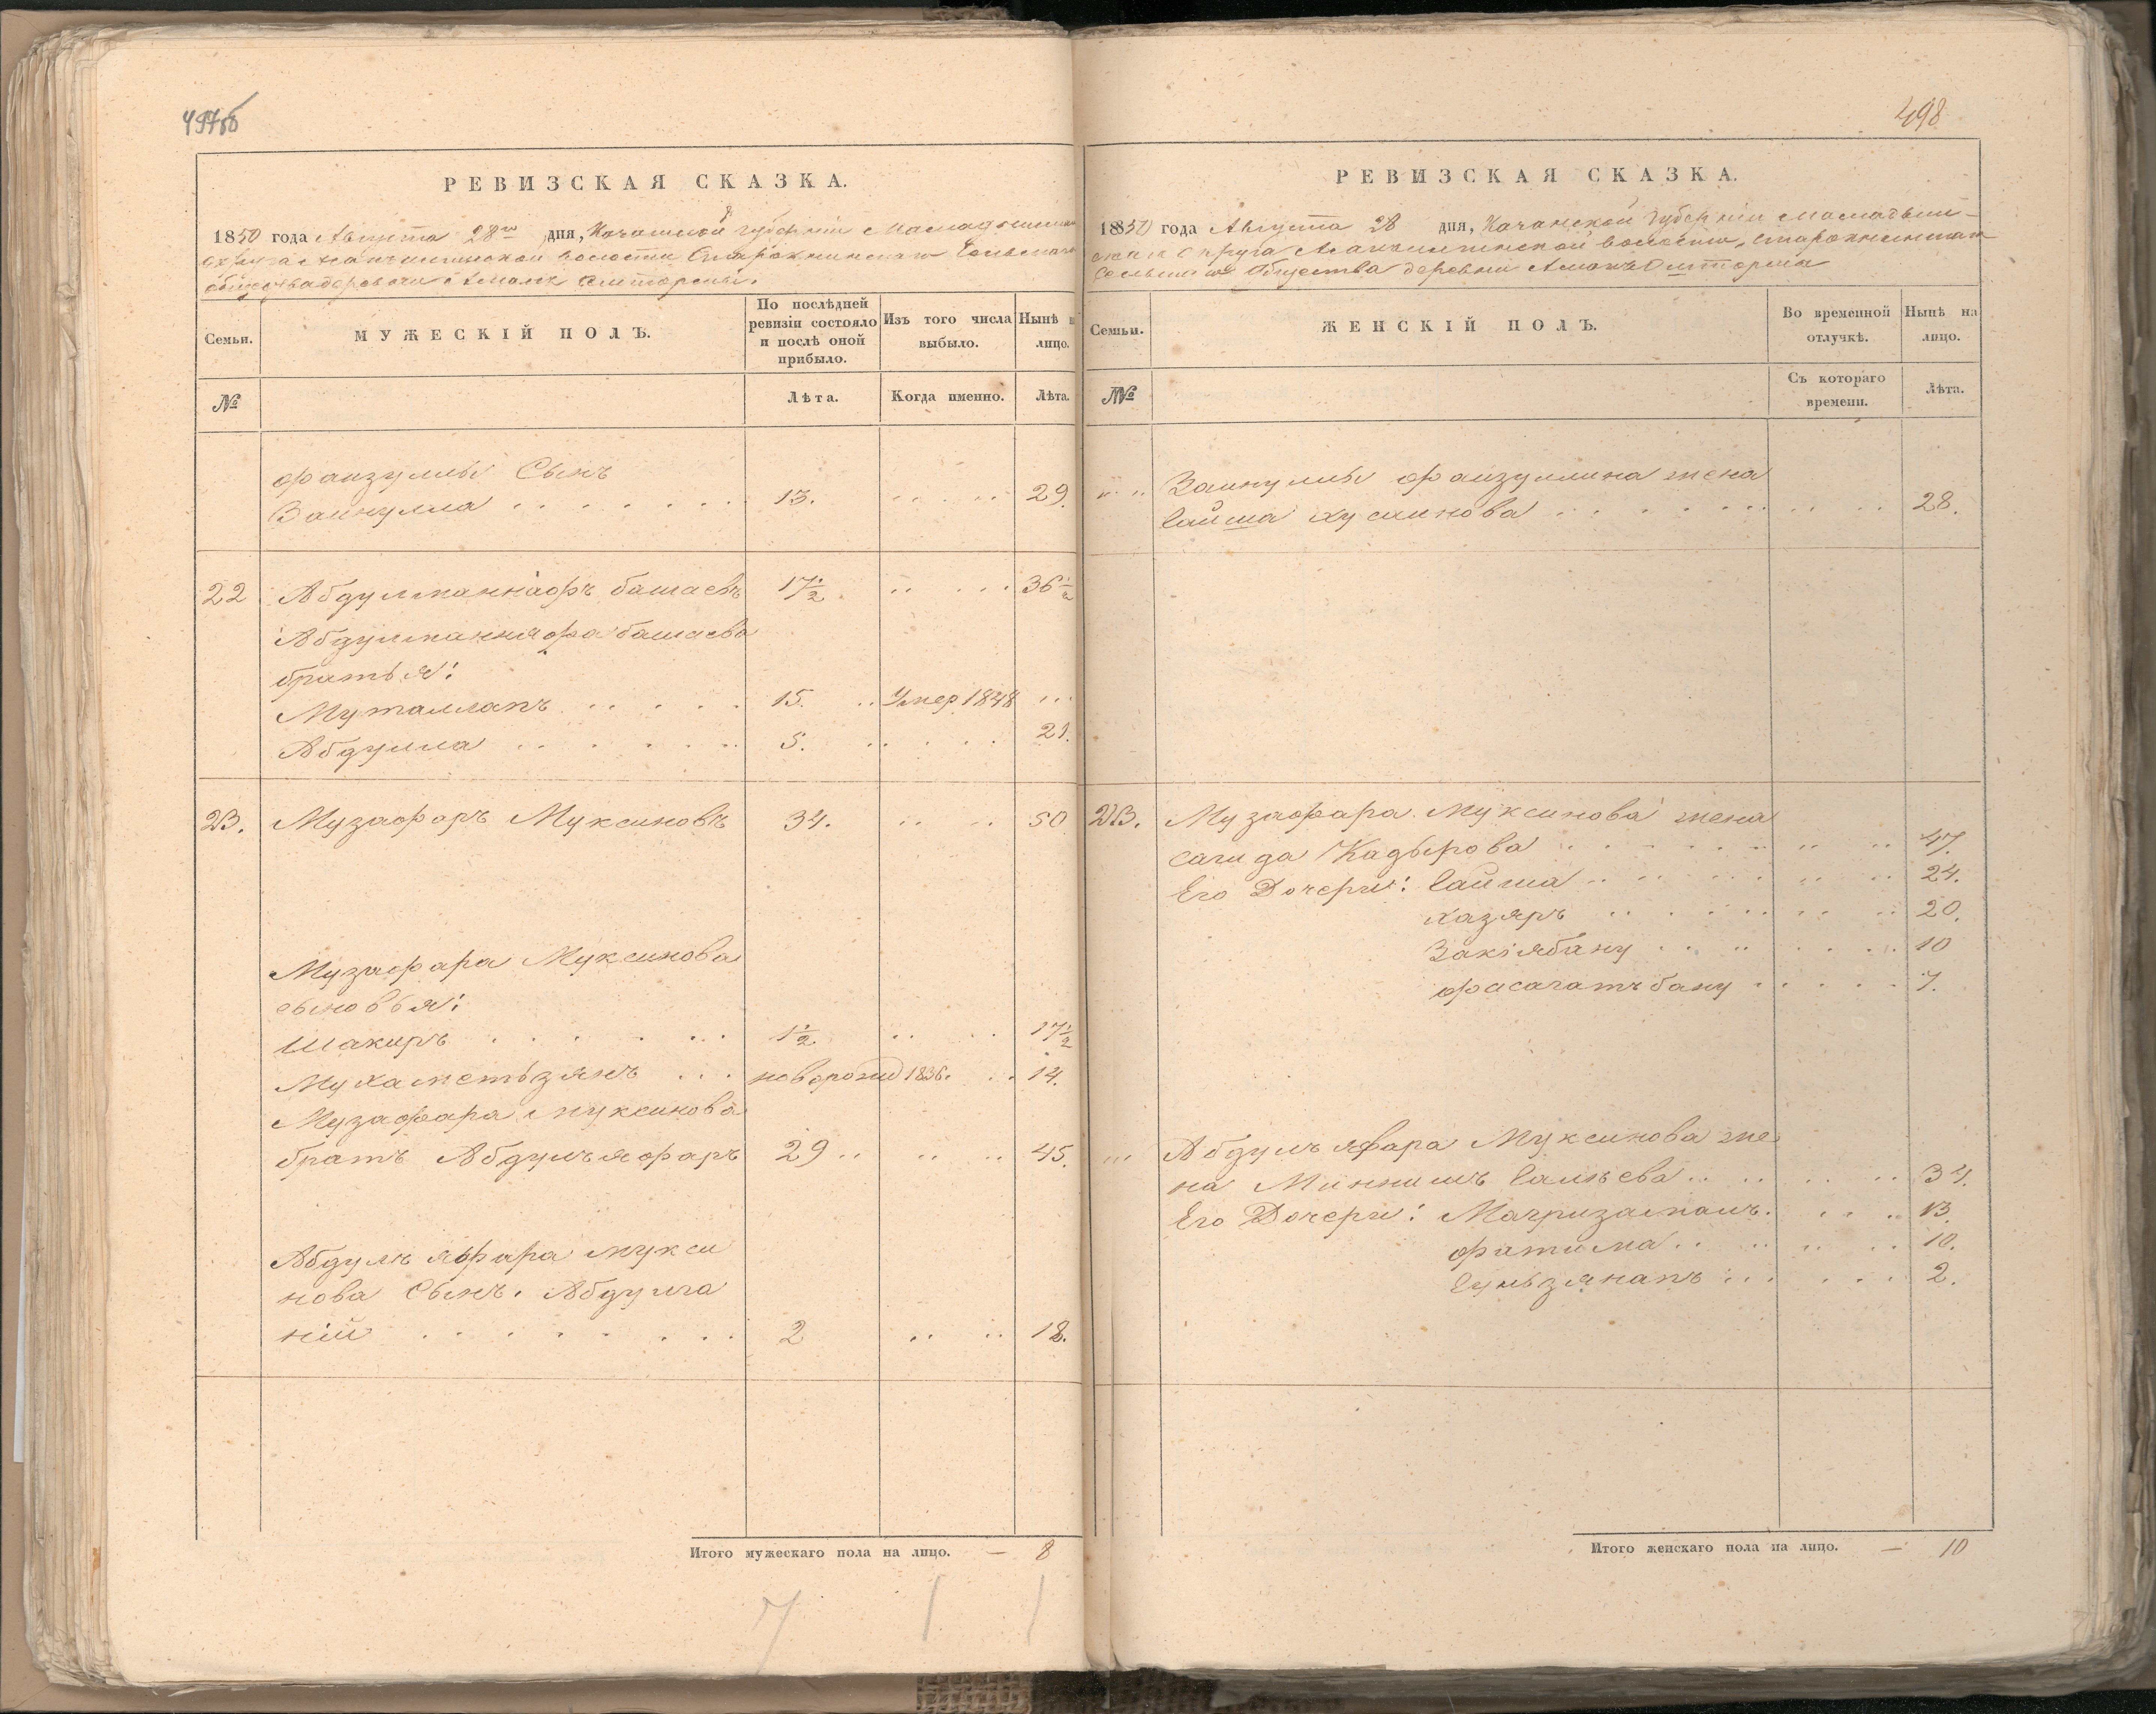 497об
РЕВИЗСКАЯ СКАЗКА.
1850 года Августа 28го дня, Казанской Губерніи Мамадышскаго
округа волости Сельскаго
общества деревни
Семьи.
МУЖЕСКІЙ ПОЛЪ.
По послѣдней ревизіи состояло и послѣ оной прибыло.
Изъ того числа выбыло.
Нынѣ на лицо.
№
Лѣта.
Когда именно.
Лѣта.
Фаизуллы Сынъ
Зайнулла 13. 29.
22 Абдулманнафъ башаевъ 17½ 36½
Абдулманнафа башаева
братья:
Муталлапъ 15. Умер 1848
Абдулла 5. 21.
23. Музафаръ Муксиновъ 34. 50
Музафара Муксинова
сыновья:
Шакиръ 1½ 17½
Мухаметьзянъ новорожд 1836. 14.
Музафара Муксинова
братъ Абдулъяфаръ 29 45.
Абдулъ яфара Мукси
нова Сынъ. Абдулга
ній 2 18.
Итого мужескаго пола на лицо. — 8
7 1 1
498
РЕВИЗСКАЯ СКАЗКА.
1850 года Августа 28 дня, Казанской Губерніи Мамадыш-
скаго округа волости,
Сельскаго Общества деревни
Семьи.
ЖЕНСКІЙ ПОЛЪ.
Во временной отлучкѣ.
Нынѣ на лицо.
№
Съ котораго времени.
Лѣта.
Зайнуллы Фаизуллина жена
Гайша Хусаинова 28.
23. Музафара Муксинова жена
Сагида Кадырова 47.
Его Дочери: Гайша 24.
Хазяръ 20.
Закіябану 10
Фасагатъбану 7.
Абдулъ яфара Муксинова же
на Миннишъ Галѣева 34.
Его Дочери: Магризаманъ. 13.
Фатима 10.
Гульзянапъ 2.
Итого женскаго пола на лицо. — 10